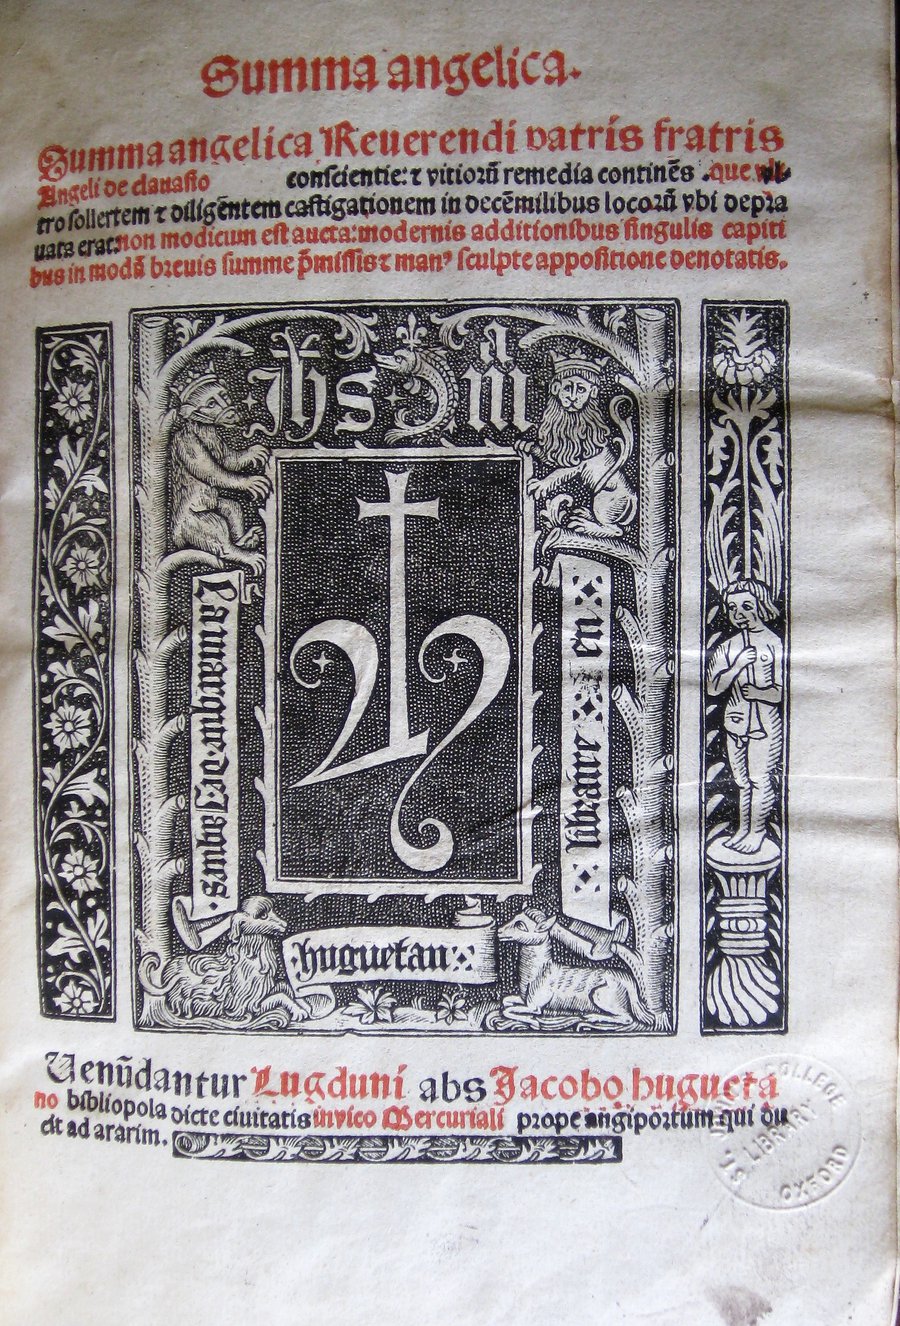 Summa angelica.
Summa angelica Reuerendi patris fratris
Angeli de clauasio conscientie: ⁊ vitiorū remedia continēs . que. vl-
tro sollertem ⁊ diligēntem castigationem in decēmilibus locorū vbi depra
uata erat: non modicum est aucta: modernis additionibus singulis capiti
bus in modū breuis summe p̄missis ⁊ manꝰ sculpte appositione denotatis.
Jhs
a
m
en
libraire
huguetan
Uenūdantur Lugduni abs Jacobo huguetā
no bibliopola dicte ciuitatis in vico Mercuriali prope angiportum qui du
cit ad ararim.
COLLEGE
LIBRARY
OXFORD